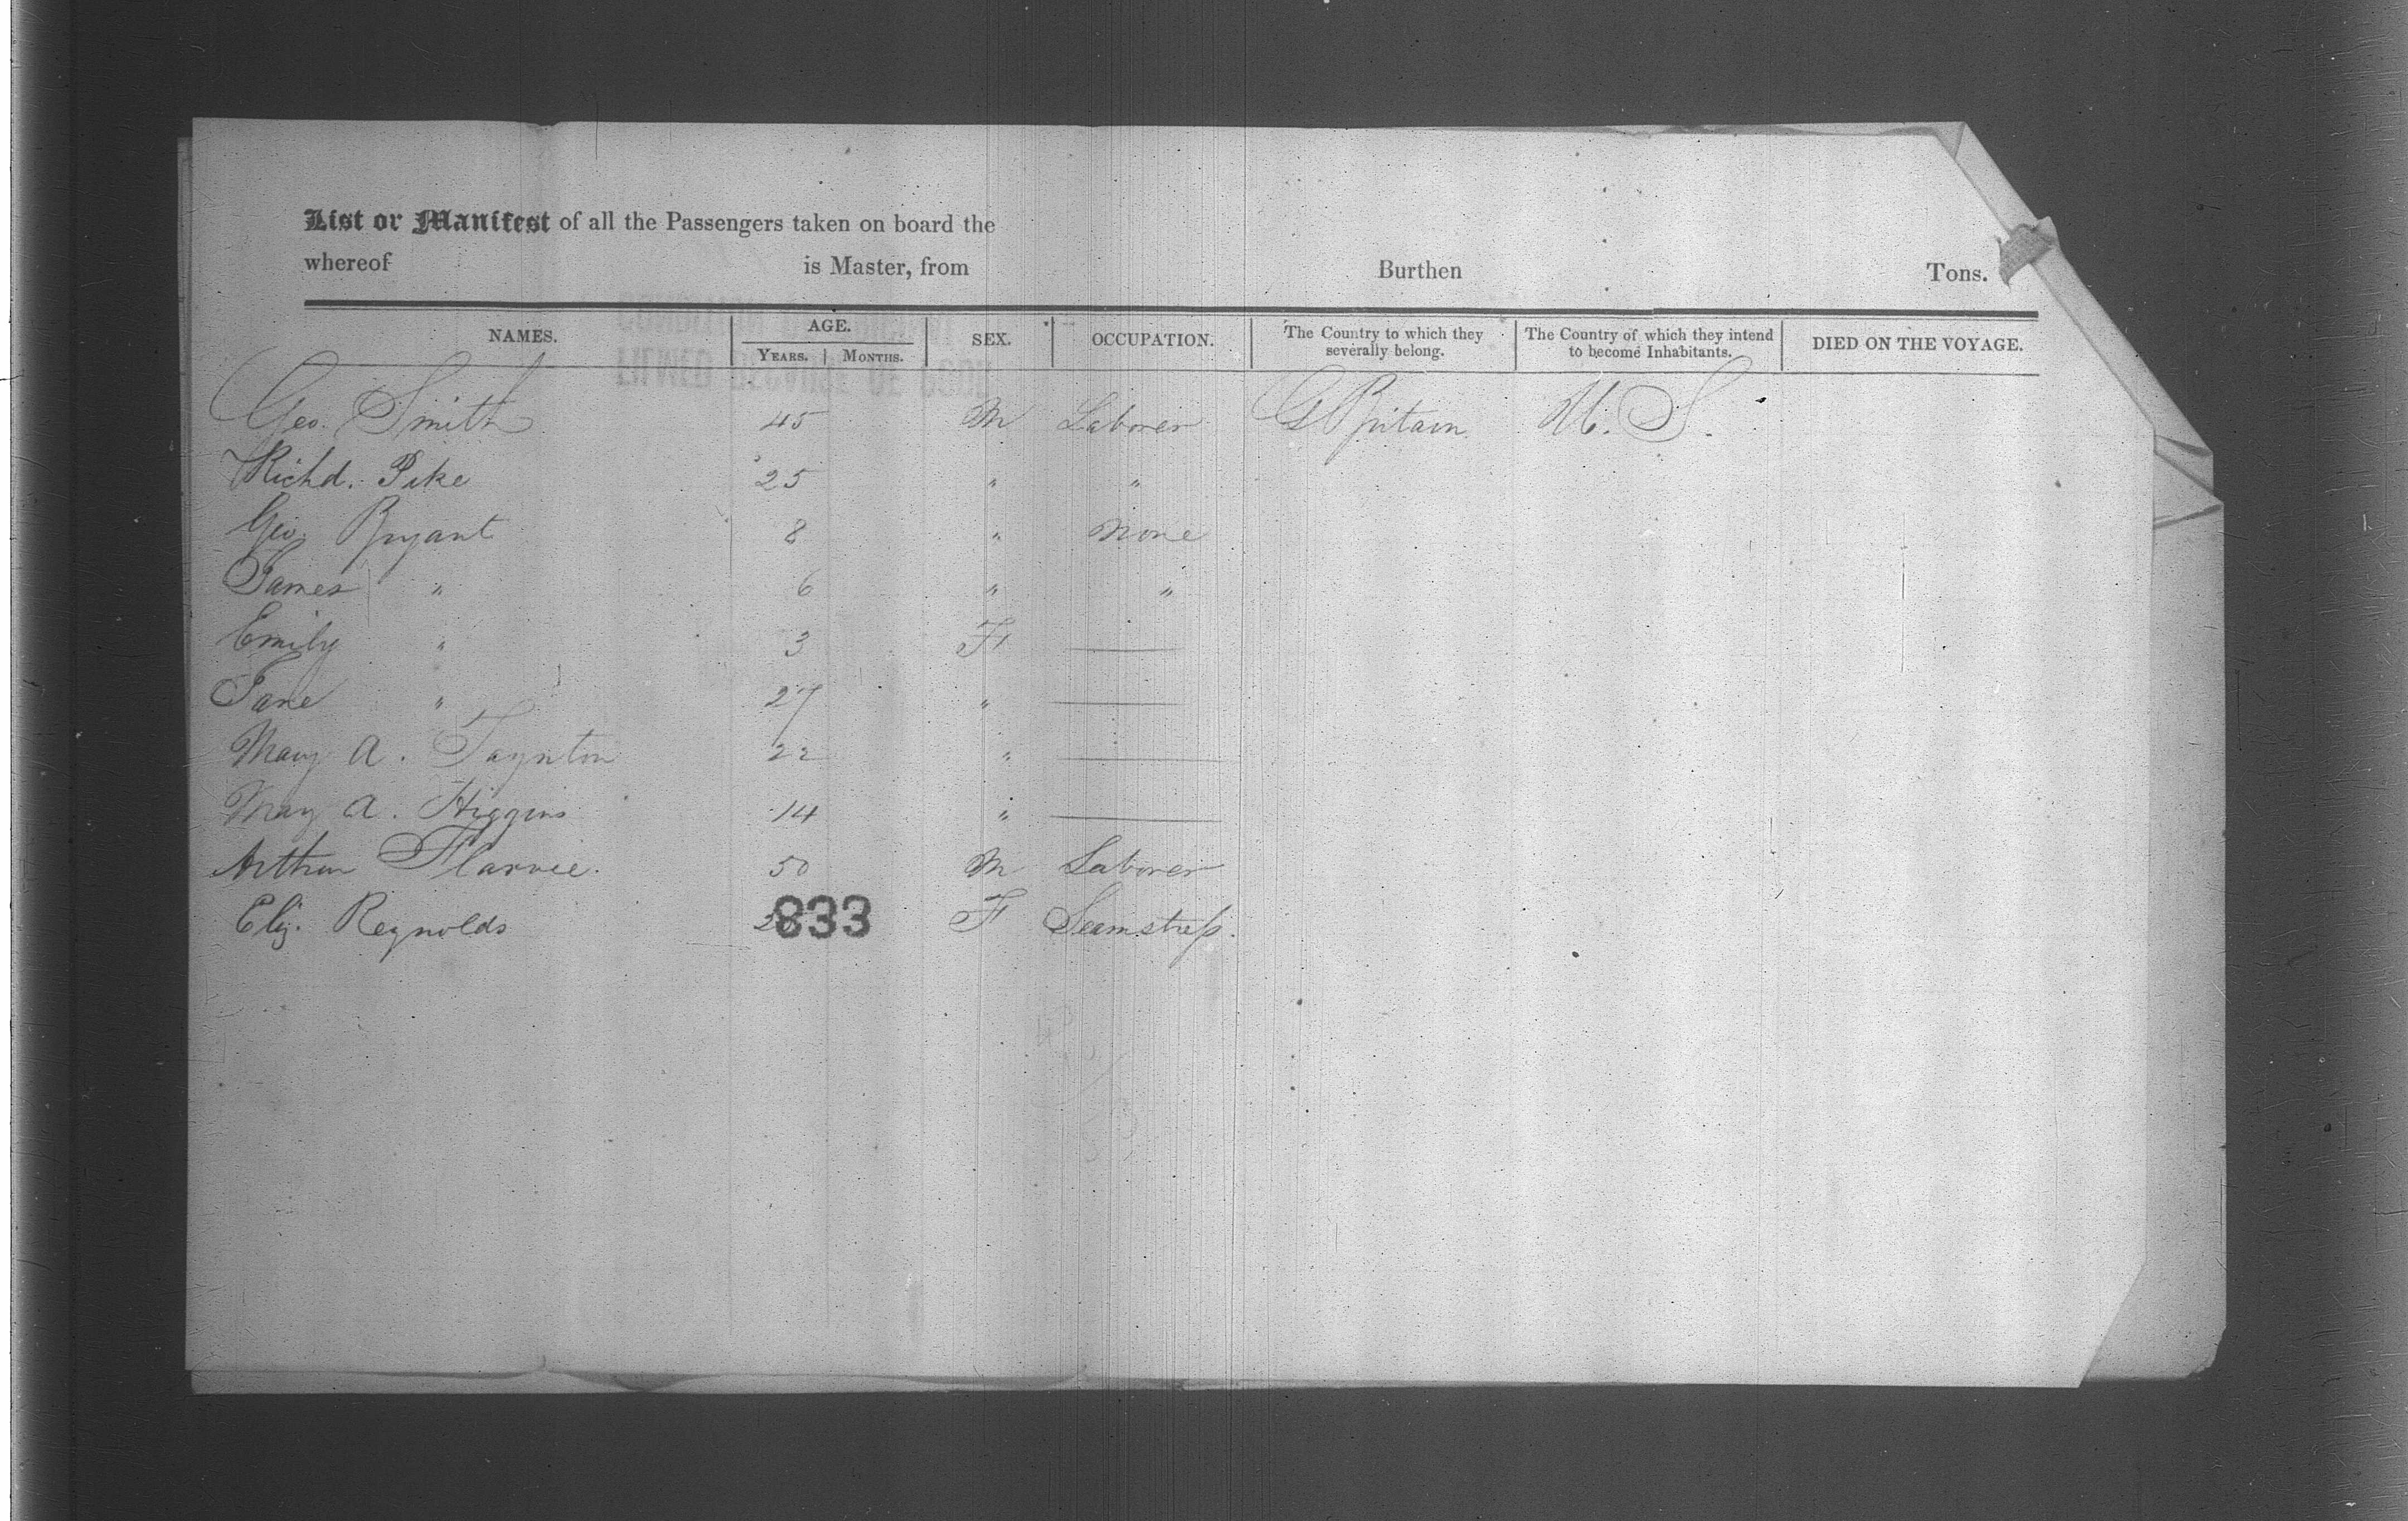 List or Manifest of all the Passengers taken on board the
whereof is Master, from Burthen Tons.
NAMES. AGE. SEX. OCCUPATION. The Country to which they severally belong. The Country of which they intend to become Inhabitants. DIED ON THE VOYAGE.
YEARS. MONTHS.
Geo. Smith 45 M Laborer G Britain U. S.
Richd. Pike 25 " "
Geo. Bryant 8 " None
James " 6 " "
Emily " 3 F
Jane " 27 "
Mary A. Taynton 22 "
Mary A. Higgins 14 "
Arthur 50 M Laborer
Eliz. Reynolds F Seamstress.
833